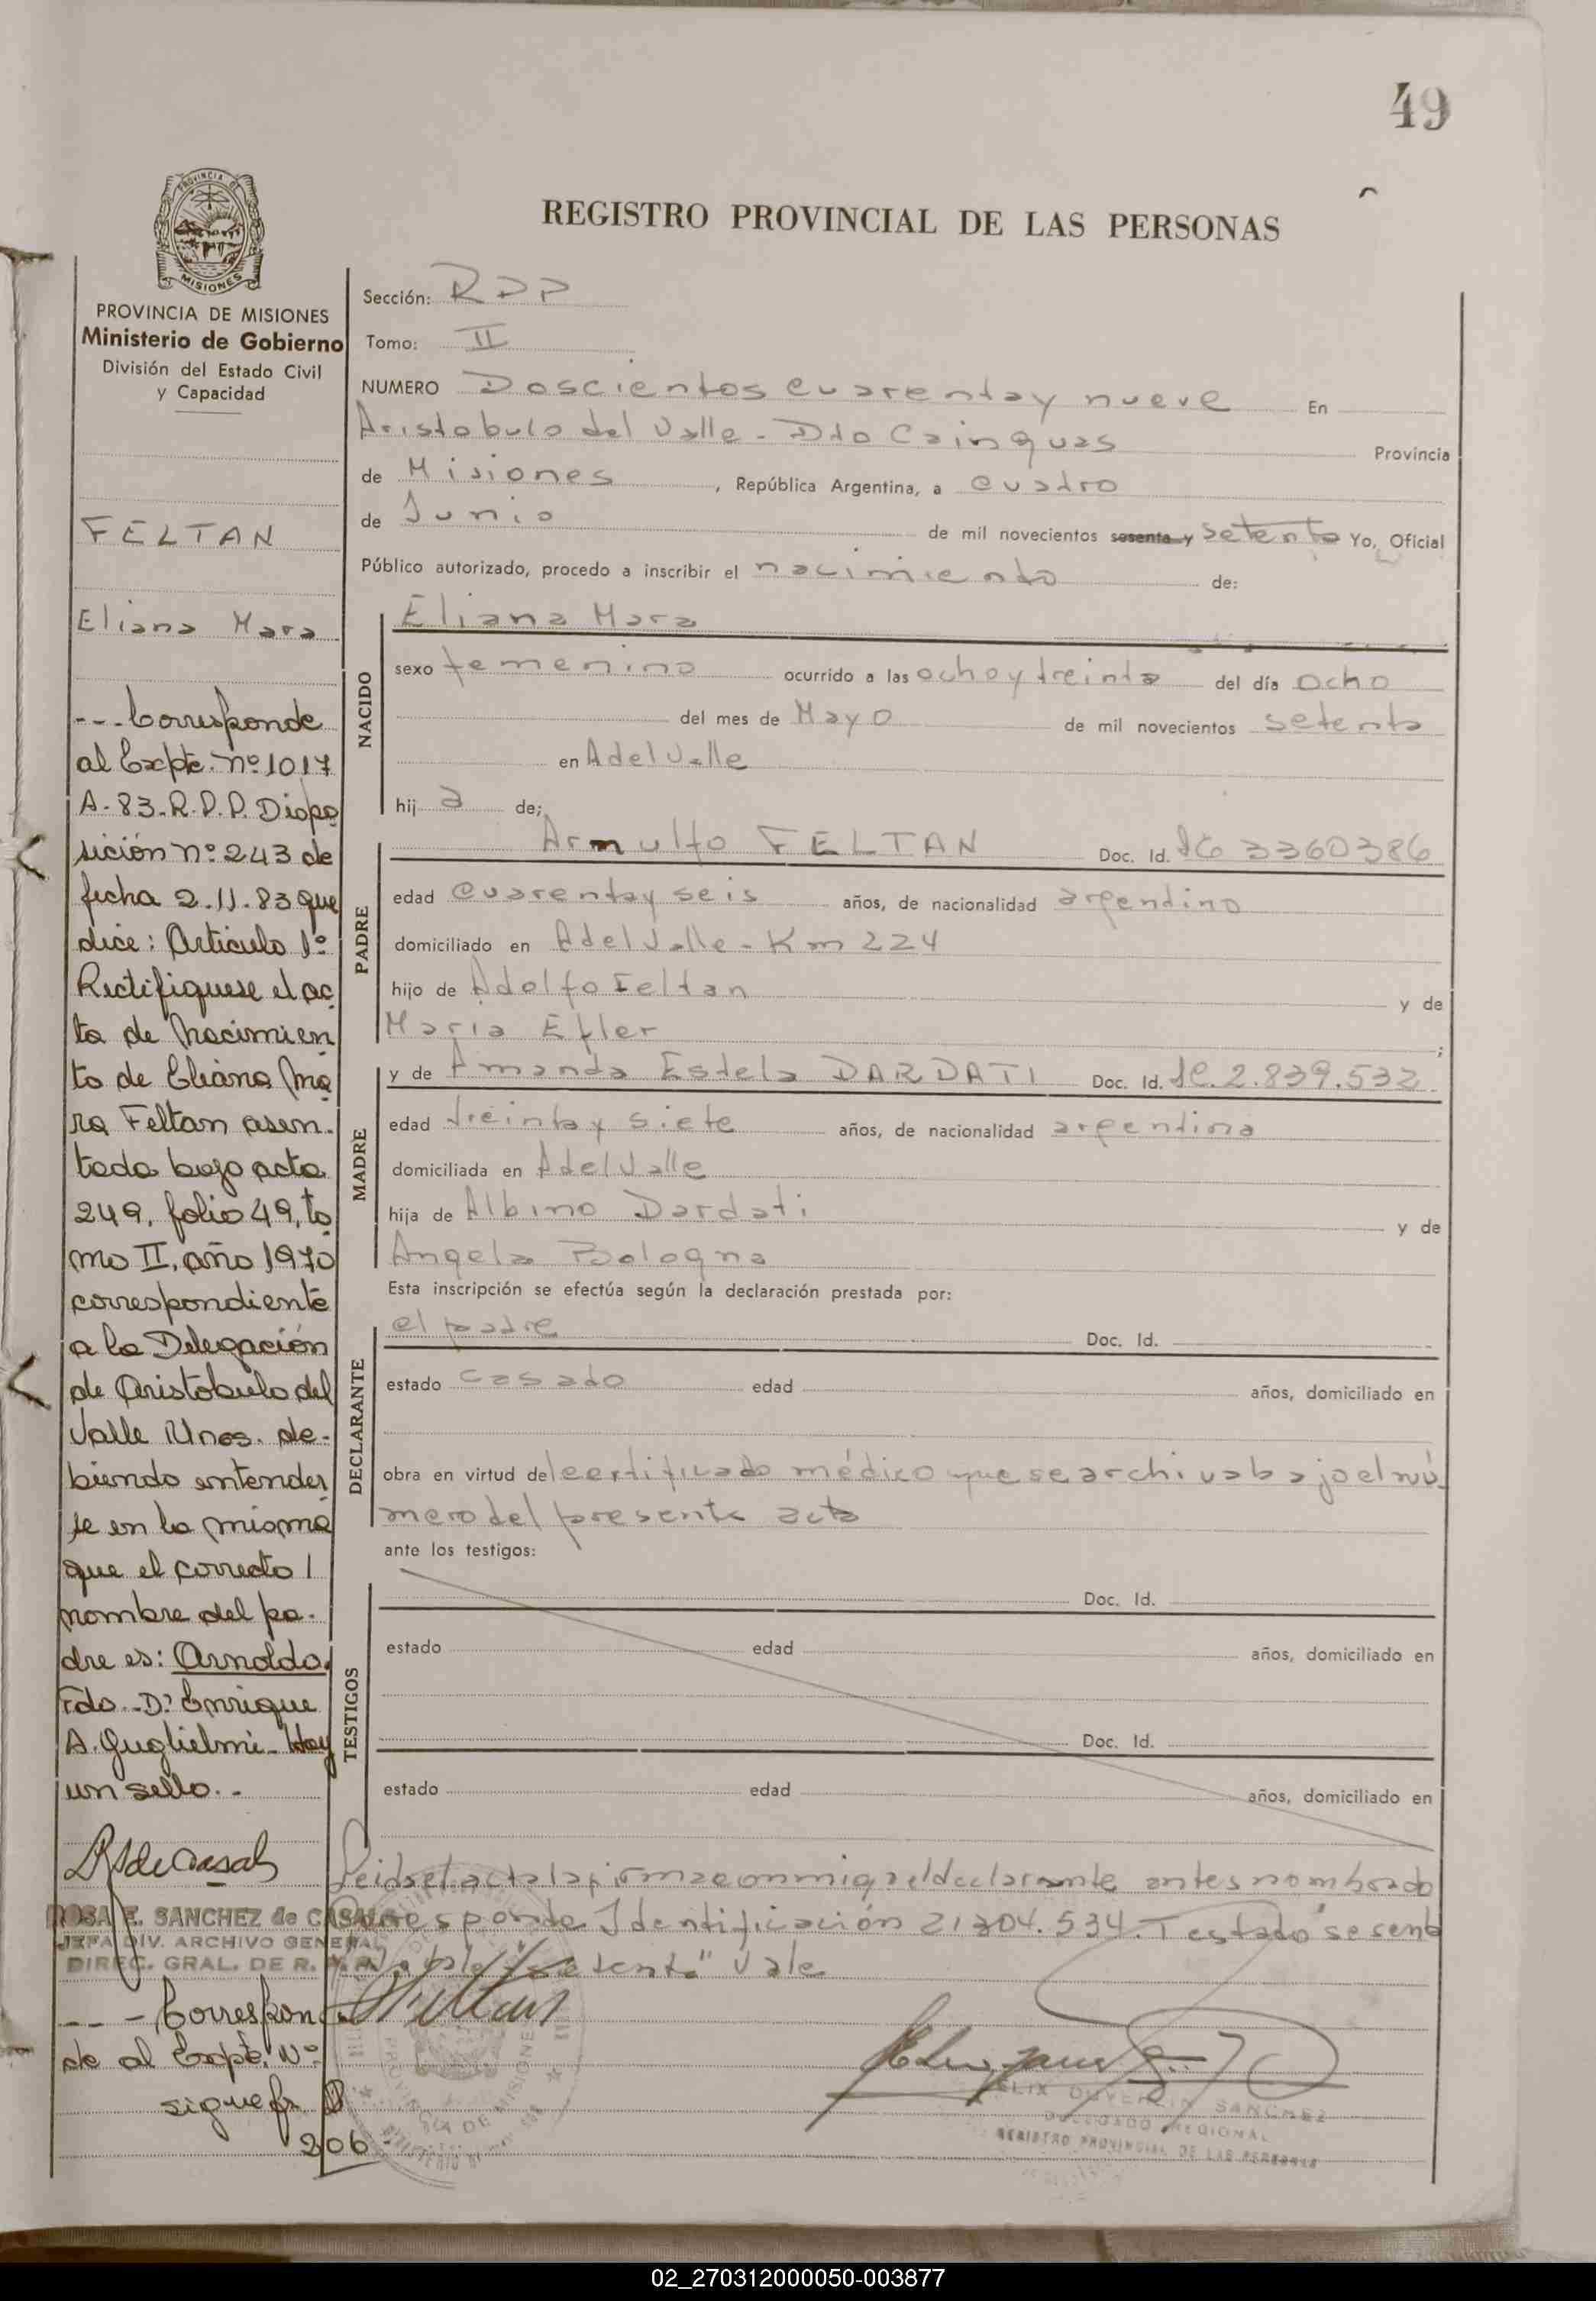 49
REGISTRO PROVINCIAL DE LAS PERSONAS
PROVINCIA DE
MISIONES
PROVINCIA DE MISIONES
Ministerio de Gobierno
División del Estado Civil
y Capacidad
FELTAN
Eliana Mara
--- Corresponde
al Expte. nº 1017
A-83-R.P.P. Dispo
sición nº 243 de
fecha 2.11.83 que
dice: Artículo 1º
Rectifiquese el ac
ta de nacimien
to de Eliana Ma
ra Feltan asen-
tada bajo acta
249, folio 49, to
mo II, año 1970
correspondiente
a la Delegación
de Aristobulo del
Valle Mnes. de-
biendo entender
se en la misma
que el correcto
nombre del pa-
dre es: Arnoldo.
Fdo. Dr. Enrique
A. Guglielmi. Hay
un sello.-
ROSA E. SANCHEZ de CASALS
JEFA DIV. ARCHIVO GENERAL
DIREC. GRAL. DE R.
--- Correspon
de al Expte. Nº
sigue fº
206
Sección: RDP
Tomo: II
NUMERO Doscientos cuarenta y nueve En
Aristobulo del Valle - Dto Cainguas Provincia
de Misiones, República Argentina, a cuatro
de Junio de mil novecientos sesenta y setenta Yo, Oficial
Público autorizado, procedo a inscribir el nacimiento de:
NACIDO
Eliana Mara
sexo femenino ocurrido a las ocho y treinta del día ocho
del mes de Mayo de mil novecientos setenta
en A del Valle
hij a de;
PADRE
Arnulfo FELTAN Doc. Id. 3360386
edad cuarenta y seis años, de nacionalidad argentino
domiciliado en A del Valle - Km 224
hijo de Adolfo Feltan y de
Maria Efler ;
MADRE
y de Amanda Estela DARDATI Doc. Id. 2.839.532
edad treinta y siete años, de nacionalidad argentina
domiciliada en A del Valle
hija de Albino Dardati y de
Angela Bologna
Esta inscripción se efectúa según la declaración prestada por:
DECLARANTE
el padre Doc. Id.
estado casado edad años, domiciliado en
obra en virtud del certificado médico que se archiva bajo el nú-
mero del presente acta
ante los testigos:
TESTIGOS
Doc. Id.
estado edad años, domiciliado en
Doc. Id.
estado edad años, domiciliado en
Leida el acta la firma conmigo el declarante antes nombrado
Corresponde Identificación 21304.534. Testado "sesenta
"setenta" Vale
FELIX SANCHEZ
DELEGADO REGIONAL
REGISTRO PROVINCIAL DE LAS PERSONAS
02_270312000050-003877